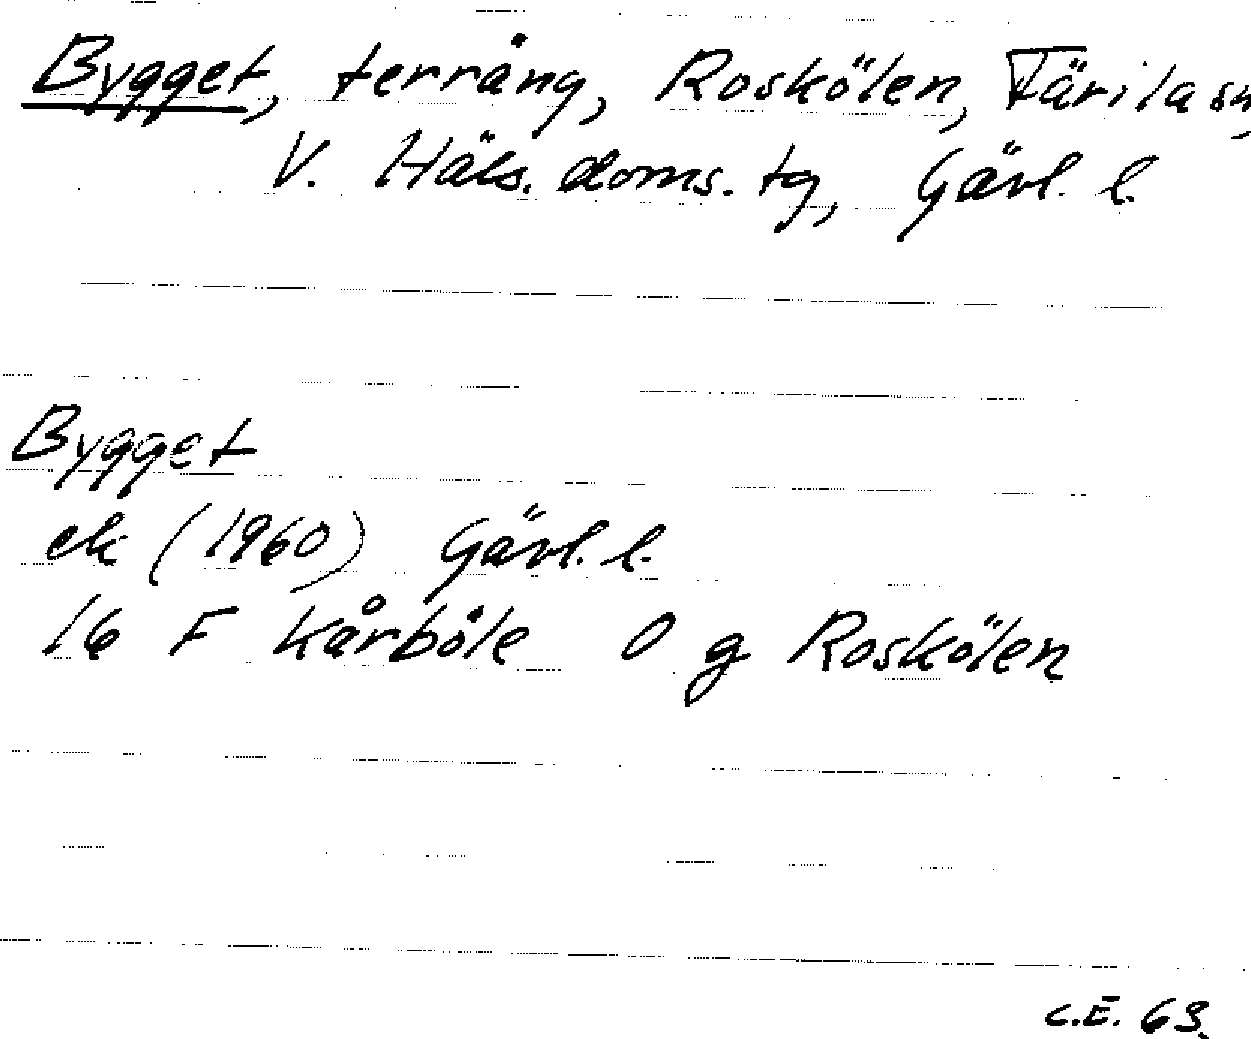 Bygget, terräng, Roskölen, Färila sn,
V. Häls. doms. tg, Gävl. l.
Bygget
ek (1960) Gävl. l.
16 F Kårböle O g Roskölen
C.E. 63.